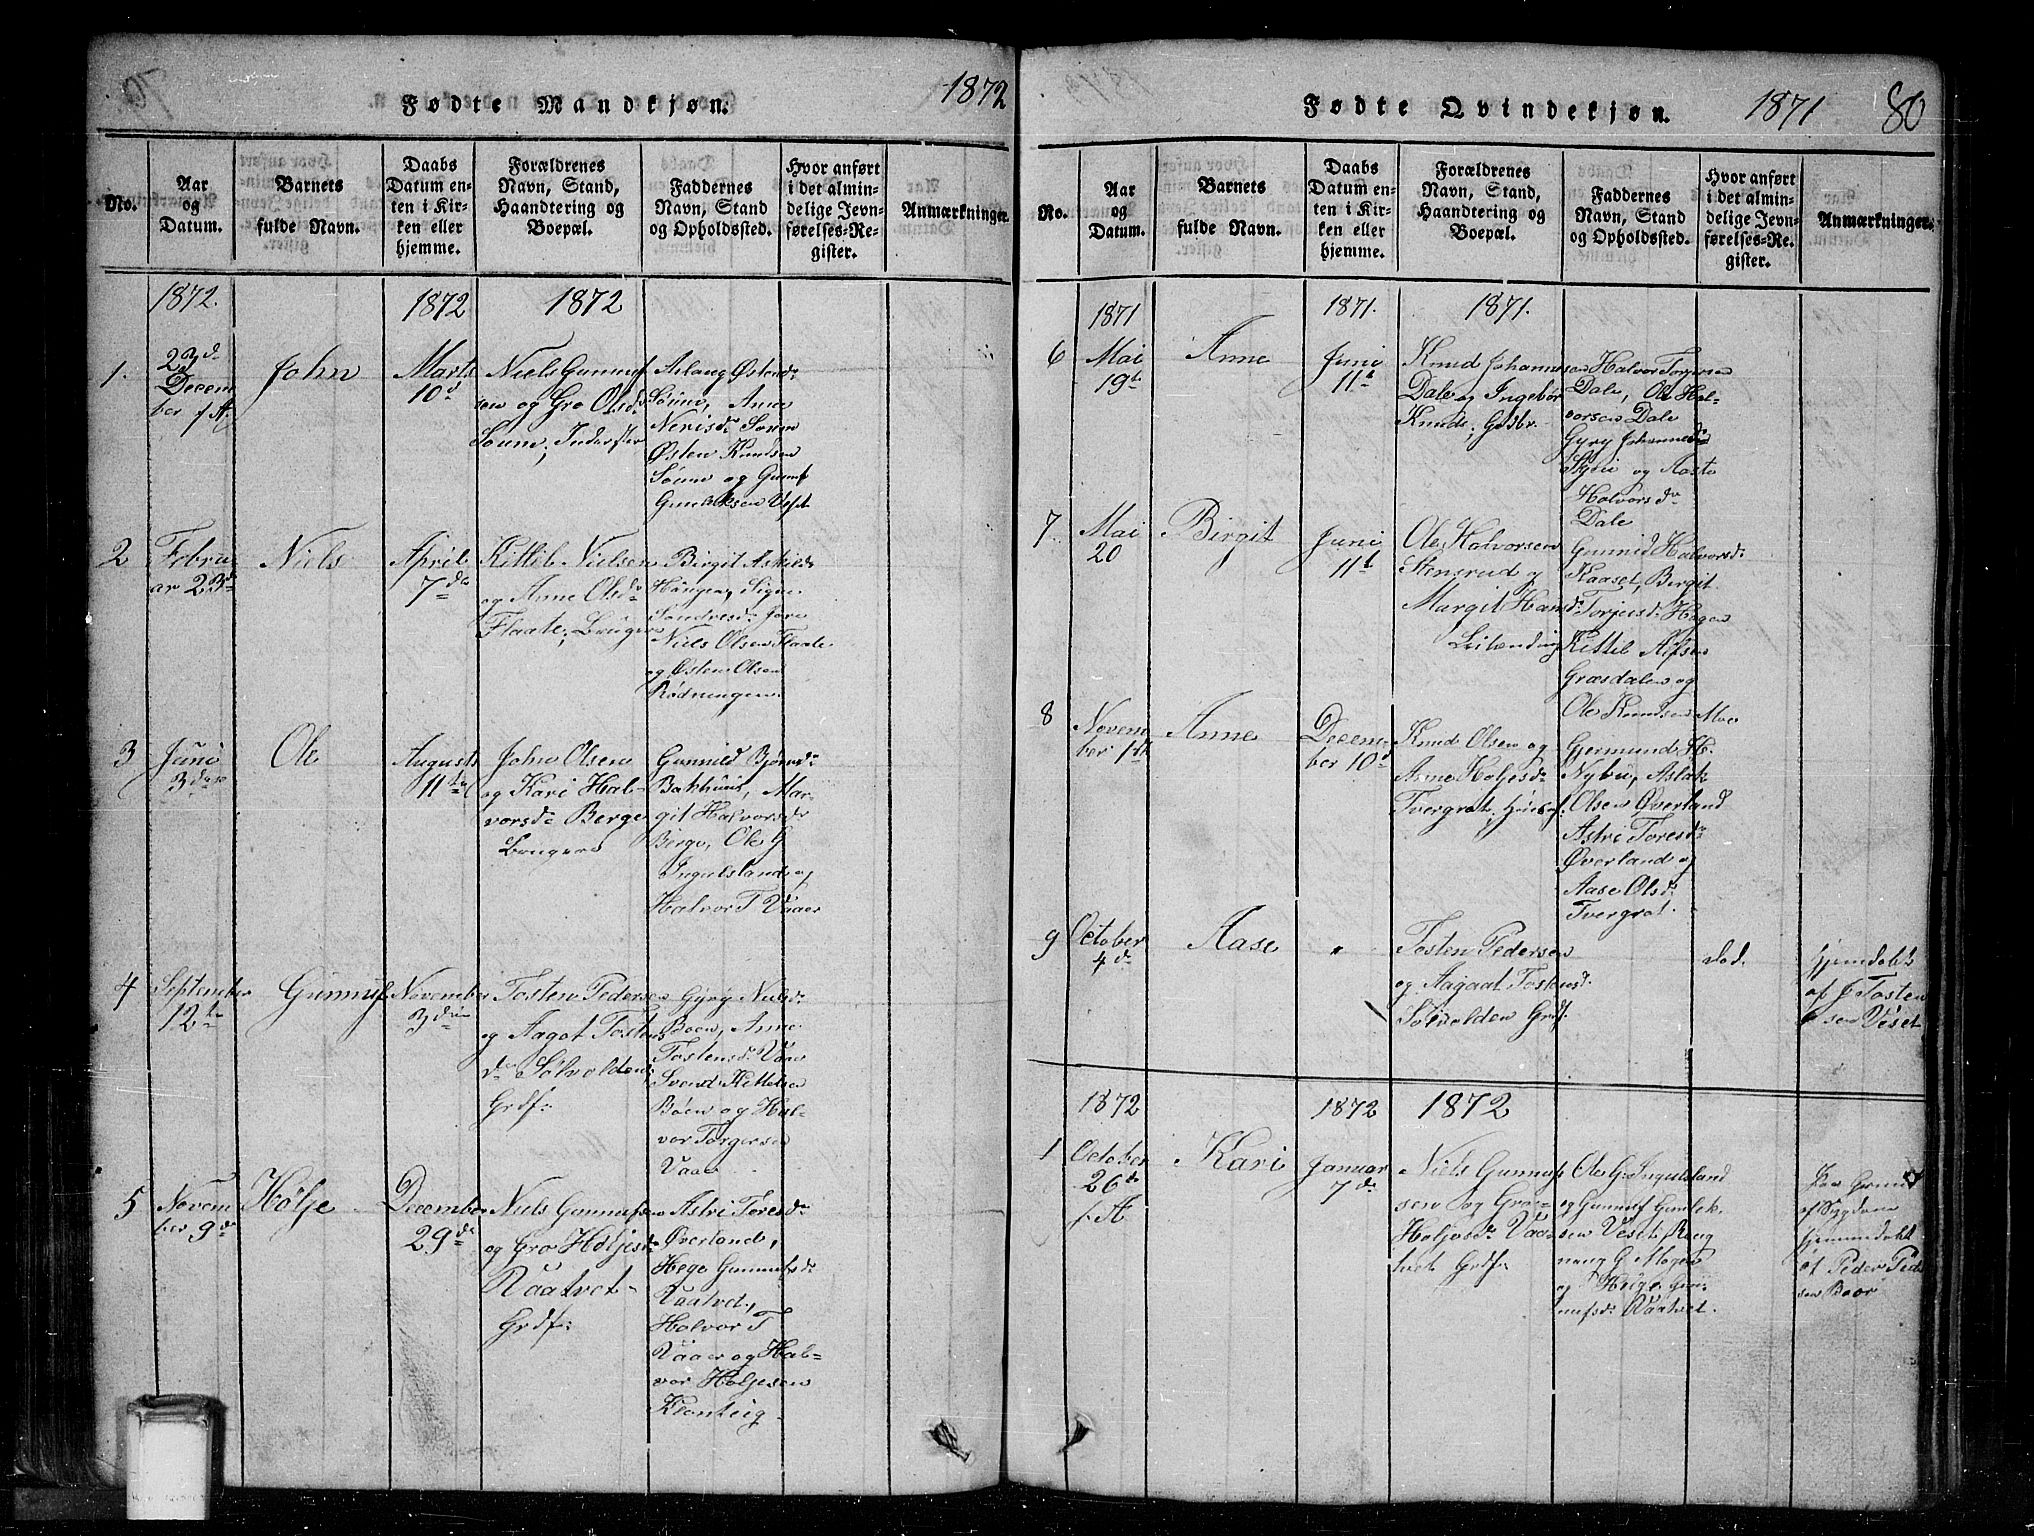 Fødte Mandkjøn.
1872
No.
Aar
og
Datum.
Barnets
fulde Navn.
Daabs
Datum en-
ten i Kir-
ken eller
hjemme.
Forældrenes
Navn, Stand,
Haandtering og
Boepæl.
Faddernes
Navn, Stand
og Opholdssted.
Hvor anført
i det almin-
delige Jevn-
førelses-Re-
gister.
Anmærkninger.
1872.
1872
1872
1.
23d
Decem
ber f A.
John
Marts
10d
Niels Gunnuf
sen og Gro Olsd
Aslaug Østensd
Anne
Østen Knudsen
og Gunuf
2
Februa
ar 23d
Niels
April
7de
Kittil Nielsen
og Anne Olsd
Flaate, Bruger
Birgit Askilds
Signe
Sondresd:
Niels Olsen Flaate
og Østen Olsen
Rødningen
3
Juni
3die
Ole
Augusts
11te
John Olsen
og Kari Hal-
vorsd: Berge
Brugere
Gunnild Bjørnsd:
Bakhuus, Mar-
git Halvorsdr
Berge, Ole G
Ingulsland og
Halvor T Vaaer
4
September
12te
Gunnuf
November
3die
Tosten Pedersen
og Aagot Tostens
dr Sølvolden
Grdf:
Gyrg Nielsd:
Boen, Anne
Tostensd: Vaae
Svend Kittelsen
Bøen og Hal-
vor Torgersen
Vaaer
5
Novem
ber 9d
Hølje
December
29de
Niels Gunnufsen
og Gro Høljesdr
Vaatvet
Grdf:
Astri Toresdr
Øverland,
Hege Gunnufsdr
Vaatvet,
Halvor T
Vaaer og Hal-
vor Høljesen
Fødte Qvindekjøn.
1871
80
No.
Aar
og
Datum.
Barnets
fulde Navn.
Daabs
Datum en-
ten i Kir-
ken eller
hjemme.
Forældrenes
Navn, Stand,
Haandtering og
Boepæl.
Faddernes
Navn, Stand
og Opholdssted.
Hvor anført
i det almin-
delige Jevn-
førelses-Re-
gister.
Anmærkninger.
1871
1871.
1871.
6
Mai
19t
Anne
Juni
11t
Knud Johannesen
Dale og Ingebor
Knuds;
Halvor Torjersen
Dale, Ole Hal-
vorsen Dale
Gyrg Johannesd
og Aaste
Halvorsdr
Dale
7
Mai
20
Birgit
Juni
11t
Ole Halvorsen
Stensrud og
Margit Hansd:
Leilænding
Gunnild Halvorsd:
Kaaset, Birgit
Torjusd: Hagen
Kittil
Græsdalen og
Ole Knudsen Moe
8
Novem
ber 1ste
Anne
Decem-
ber 10d
Knud Olsen og
Anne Høljesdr
Tvergrot,
Gjermund H.
Nybu, Aslak
Olsen Øverland
Astri Toresdr
Øverland og
Aase Olsdr
Tvergrot.
9
October
4de
Aase
"
Tosten Pedersen
og Aagaat Tostensd:
Sølvolden Grdf:
død.
hjemdøbt
af J Tosten
sen Veset
1872
1872
1872
1
October
26de
f A
Kari
Januar
7de
Niels Gunnuf
sen og Gro
Høljesdr Vaa-
tvet Grdf:
Ole G. Ingulsland
og Gunnuf Gunlek
sen Veset, Rag
og Hege Gun-
nufsd: Vaatvet.
Paa Grund
af Sygdom
hjemmedøbt
af Peder Peder
sen Boer